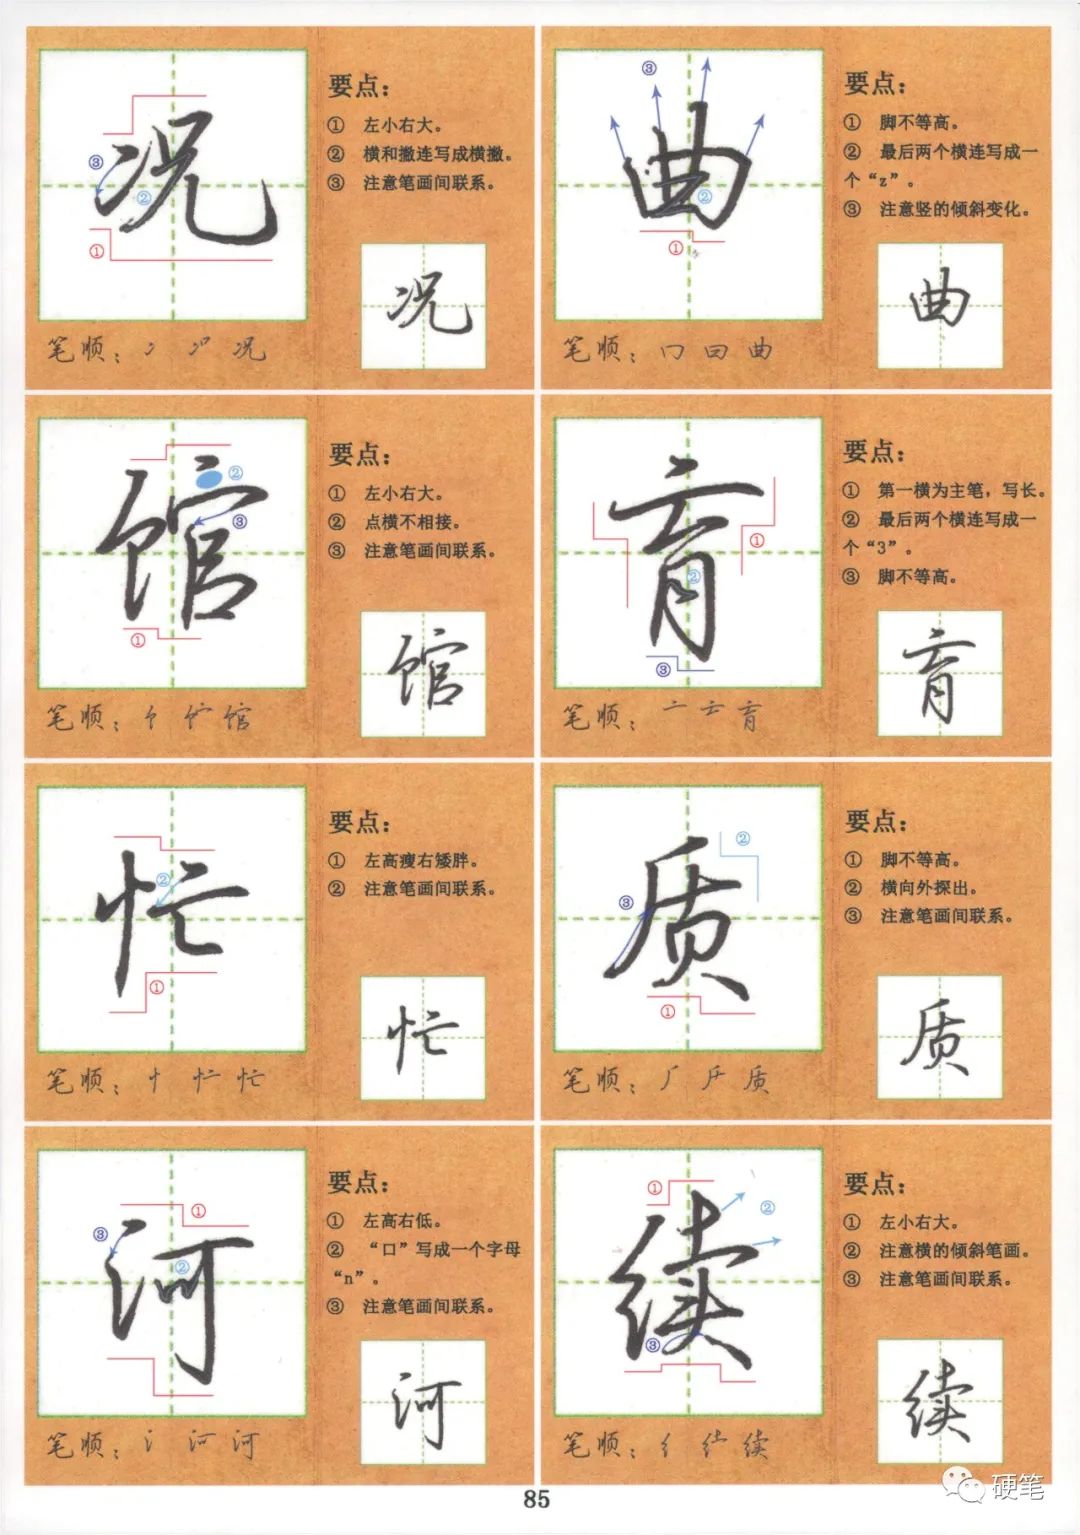 况
要点：
① 左小右大。
② 横和撇连写成横撇。
③ 注意笔画间联系。
③
②
①
况
笔顺：冫 况
曲
要点：
① 脚不等高。
② 最后两个横连写成一
个“z”。
③ 注意竖的倾斜变化。
③
②
①
曲
笔顺：冂 曰 曲
馆
要点：
① 左小右大。
② 点横不相接。
③ 注意笔画间联系。
②
③
①
馆
笔顺：饣 馆
育
要点：
① 第一横为主笔，写长。
② 最后两个横连写成一
个“3”。
③ 脚不等高。
①
②
③
育
笔顺：亠 育
忙
要点：
① 左高瘦右矮胖。
② 注意笔画间联系。
②
①
忙
笔顺：忄 忙
质
要点：
① 脚不等高。
② 横向外探出。
③ 注意笔画间联系。
②
③
①
质
笔顺：厂 质
河
要点：
① 左高右低。
② “口”写成一个字母
“n”。
③ 注意笔画间联系。
①
③
②
河
笔顺：氵 河
续
要点：
① 左小右大。
② 注意横的倾斜笔画。
③ 注意笔画间联系。
①
②
③
续
笔顺：纟 续
85
硬笔